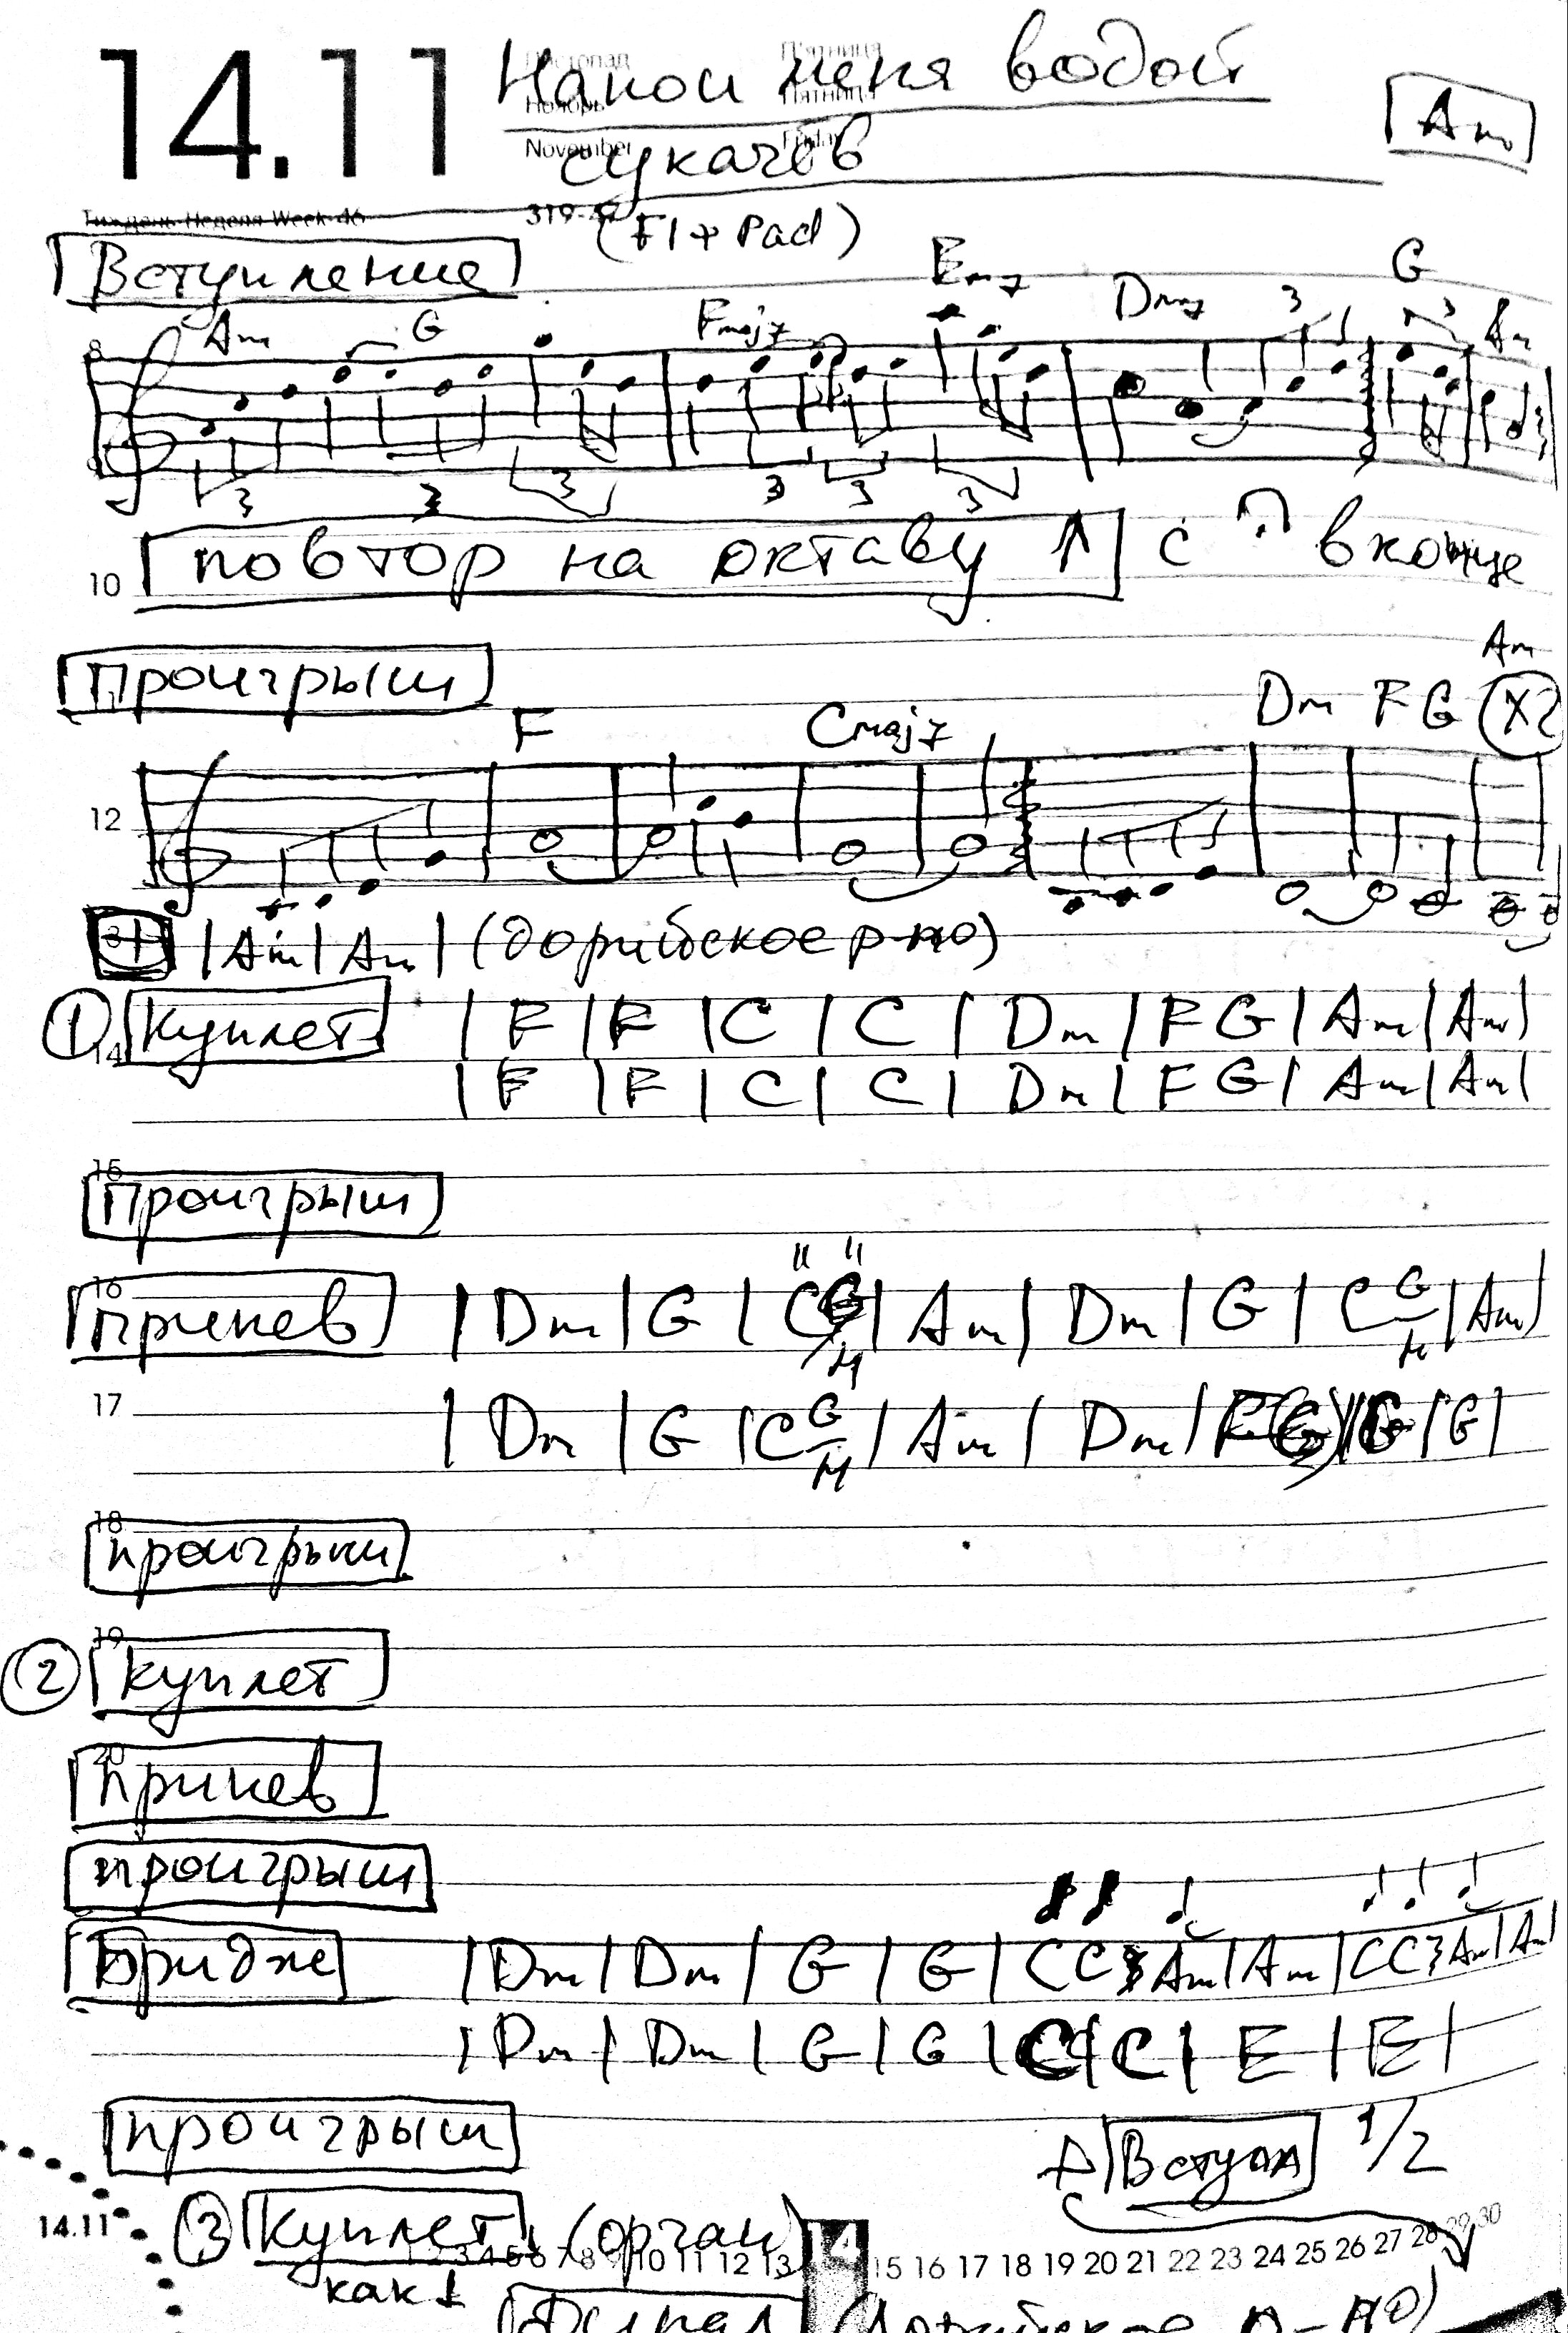 14.11
Листопад П'ятниця
Ноябрь Пятница
November Friday
Напои меня водой
Сукачёв
Am
Тиждень Неделя Week 46
319-
(Fl + Pad)
Вступление
Am G Fmaj7 Em7 Dm7 3 G 3 Am
3 3 3 3 3 3
10 повтор на октаву ↑ с 𝄐 в конце
Проигрыш
F Cmaj7 Dm F G Am X2
12
| Am | Am | (дорийское р-но)
① Куплет | F | F | C | C | Dm | F G | Am | Am |
14
| F | F | C | C | Dm | F G | Am | Am |
15
Проигрыш
16
припев | Dm | G | C G/H | Am | Dm | G | C G/H | Am |
17 | Dm | G | C G/H | Am | Dm | G | G |
18
проигрыш
19
② куплет
20
Припев
проигрыш
Бридж | Dm | Dm | G | G | C C Am | Am | C C Am | Am |
| Dm | Dm | G | G | C | C | E | E |
проигрыш
Вступл 1/2
14.11
③ Куплет (орган)
14 15 16 17 18 19 20 21 22 23 24 25 26 27 28 29 30
как 1